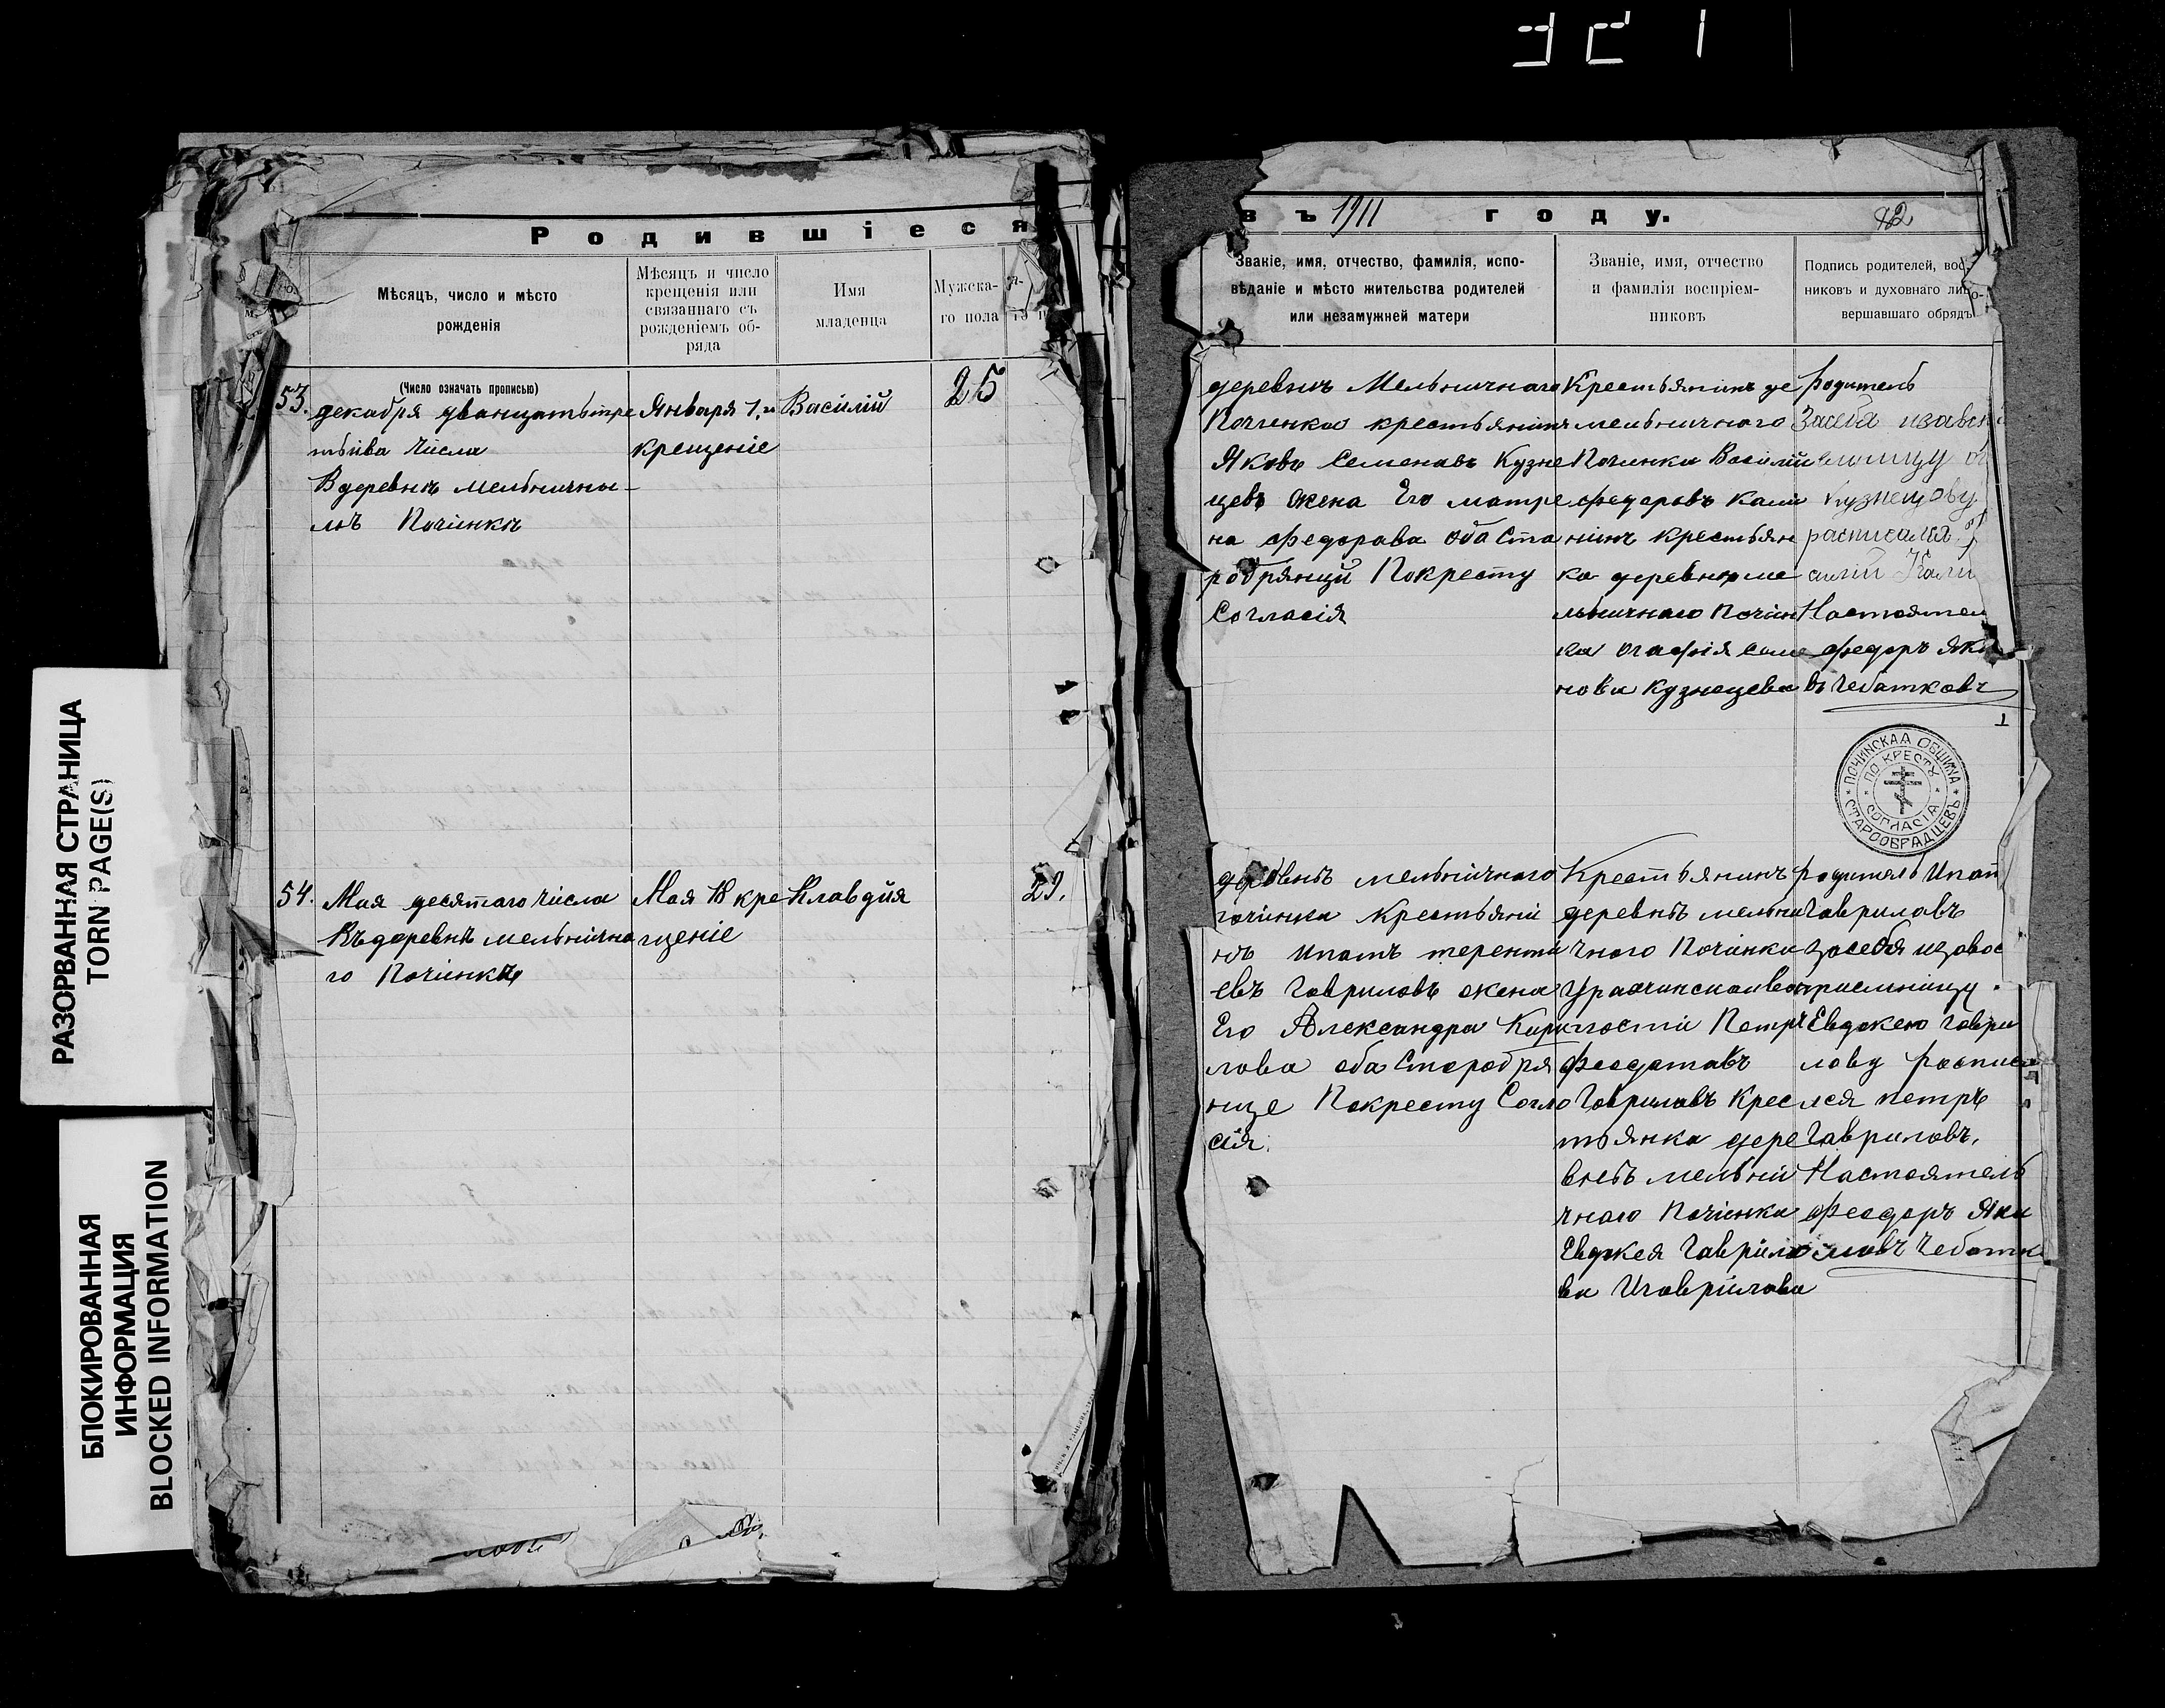 Родившіеся
въ 1911 году.
42
Мѣсяцъ, число и мѣсто
рожденія
Мѣсяцъ и число
крещенія или
связаннаго съ
рожденіемъ об-
ряда
Имя
младенца
Мужска-
го пола
Званіе, имя, отчество, фамилія, испо-
вѣданіе и мѣсто жительства родителей
или незамужней матери
Званіе, имя, отчество
и фамилія воспріем-
никовъ
Подпись родителей, вос-
никовъ и духовнаго ли
вершавшаго обрядъ
(Число означать прописью)
53.
декабря дванцатьтре
тьива числа
Вдеревнѣ мельнично-
мъ Починкѣ
Января 1,го
крещеніе
Васілій
25
деревнѣ Мельничнаго
Починка крестьянинъ
Яковъ Семенавъ Кузне
цевъ жена Его матре
на федорава оба Ста
робрянцы Покресту
Согласія
Крестьянинъ де
мельничнаго
Починка Василій
федоровъ Кали
нинъ крестьян
ка деревни ме
льничнаго Почин
ка огафія семе
нова Кузнецева
родитель
Засебя изавсп
емницу
Кузнецову
расписался
силій Кали
Настоятел
федоръ Яки
въ Чебатковъ
ПОЧИНСКАЯ ОБЩИНА
СТАРООБРАДЦЕВЪ
ПО КРЕСТУ
СОГЛАСІЯ
54.
Мая десятаго числа
Въдеревнѣ мельнично
го Починка
Мая 18 кре
щеніе
Клавдия
29.
деревнѣ мельничнаго
починка Крестьяни
нъ Ипатъ теренти
евъ Гавриловъ жена
Его Александра Кири
лова оба Старобря
нце Покресту Согла
сія.
Крестьянинъ
деревнѣ мельни
чнаго Починка
лости Петръ
Феодотавъ
Гавриловъ Крес
тьянка дере
внѣ мельни
чнаго Починка
Евдокея Гаврило
ва Игаврилова
родитель Ипат
Гавриловъ
засебя изавос
приемницу
Евдокею Гаври
лову росписа
лся петръ
Гавриловъ.
Настоятель
Феодоръ Яки
мовъ Чебатк
РАЗОРВАННАЯ СТРАНИЦА
TORN PAGE(S)
БЛОКИРОВАННАЯ
ИНФОРМАЦИЯ
BLOCKED INFORMATION